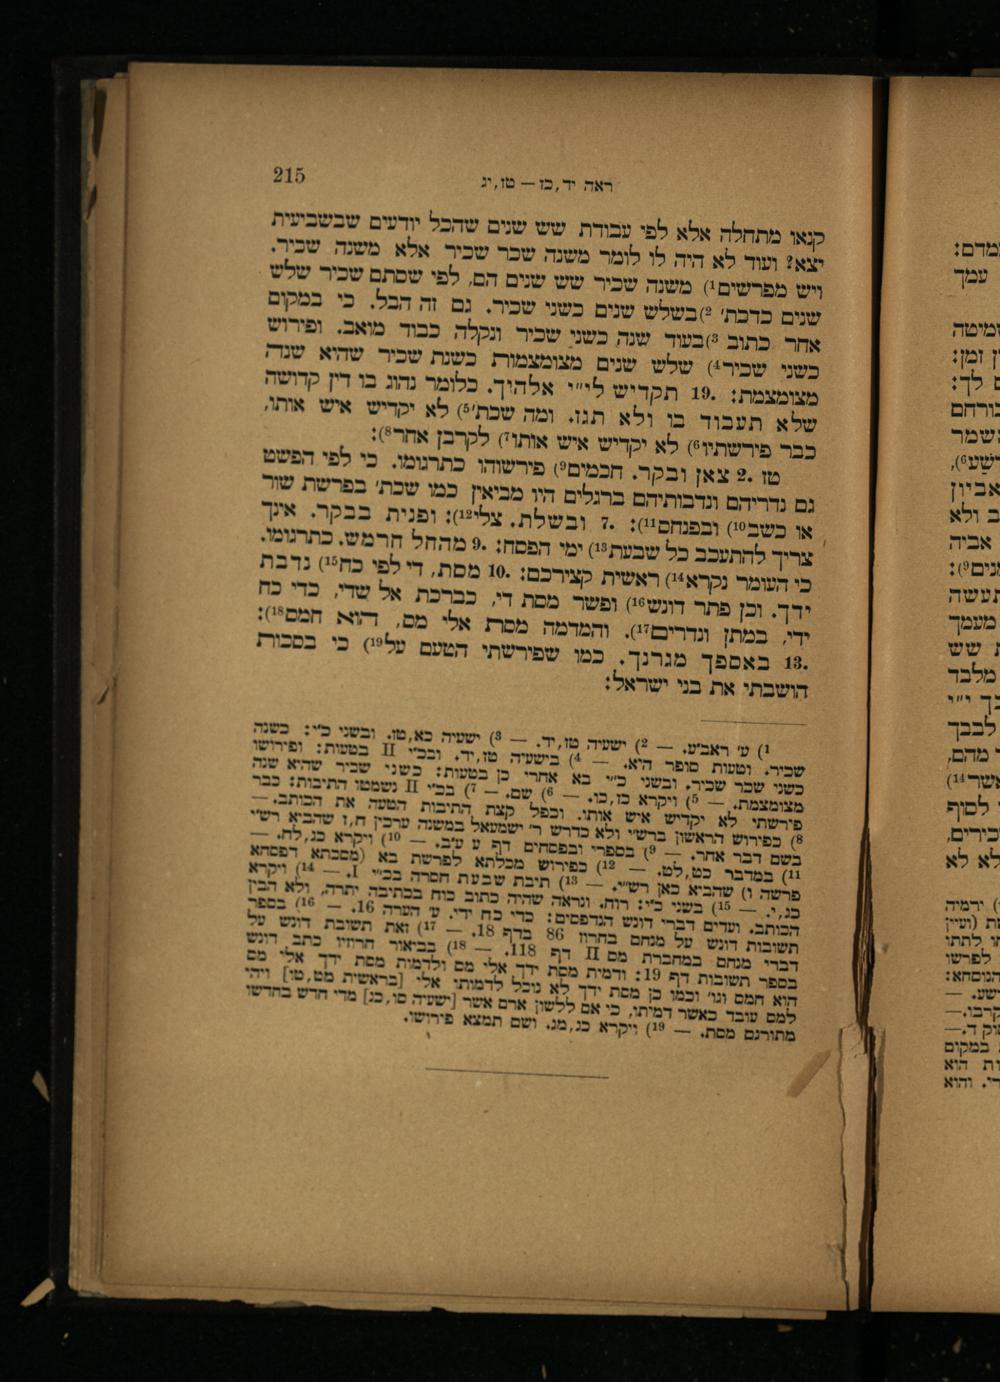 ראה יד,כז — טז,יג 215
קנאו מתחלה אלא לפי עבודת שש שנים שהכל יודעים שבשביעית
יצא? ועוד לא היה לו לומר משנה שכר שכיר אלא משנה שכיר.
ויש מפרשים¹) משנה שכיר שש שנים הם, לפי שסתם שכיר שלש
שנים כדכת' ²)בשלש שנים כשני שכיר. גם זה הבל. כי במקום
אחר כתוב ³)בעוד שנה כשני שכיר ונקלה כבוד מואב. ופירוש
כשני שכיר⁴) שלש שנים מצומצמות כשנת שכיר שהיא שנה
מצומצמת: .19 תקדיש לי״י אלהיך. כלומר נהוג בו דין קדושה
שלא תעבוד בו ולא תגז. ומה שכת'⁵) לא יקדיש איש אותו,
כבר פירשתיו⁶) לא יקדיש איש אותו⁷) לקרבן אחר⁸):
טז .2 צאן ובקר. חכמים⁹) פירשוהו כתרגומו. כי לפי הפשט
גם נדריהם ונדבותיהם ברגלים היו מביאין כמו שכת' בפרשת שור
או כשב¹⁰) ובפנחס¹¹): .7 ובשלת. צלי¹²): ופנית בבקר. אינך
צריך להתעכב כל שבעת¹³) ימי הפסח: .9 מהחל חרמש. כתרגומו.
כי העומר נקרא¹⁴) ראשית קצירכם: .10 מסת, די לפי כח¹⁵) נדבת
ידך. וכן פתר דונש¹⁶) ופשר מסת די, כברכת אל שדי, כדי כח
ידי, במתן ונדרים¹⁷). והמדמה מסת אלי מס, הוא חמס¹⁸):
.13 באספך מגרנך. כמו שפירשתי הטעם על¹⁹) כי בסכות
הושבתי את בני ישראל:
¹) ע' ראב״ע. — ²) ישעיה טז,יד. — ³) ישעיה כא,טז. ובשני כ״י: כשנה
שכיר. וטעות סופר היא. — ⁴) בישעיה טז,יד. ובכ״י II בטעות: ופירושו
כשני שכר שכיר. ובשני כ״י בא אחרי כן בטעות: כשני שכיר שהיא שנה
מצומצמת. — ⁵) ויקרא כז,כו. — ⁶) שם. — ⁷) בכ״י II נשמטו התיבות: כבר
פירשתי לא יקדיש איש אותו. וכפל קצת התיבות הטעה את הכותב. —
⁸) כפירוש הראשון ברש״י ולא כדרש ר' ישמעאל במשנה ערכין ח,ז שהביא רש״י
בשם דבר אחר. — ⁹) בספרי ובפסחים דף ע ע״ב. — ¹⁰) ויקרא כג,לח. —
¹¹) במדבר כט,לט. — ¹²) כפירוש מכלתא לפרשת בא (מסכתא דפסחא
פרשה ו) שהביא כאן רש״י. — ¹³) תיבת שבעת חסרה בכ״י I. — ¹⁴) ויקרא
כג,י. — ¹⁵) בשני כ״י: רוח. ונראה שהיה כתוב כוח בכתיבה יתרה, ולא הבין
הכותב. ועדים דברי דונש הנדפסים: כדי כח ידי. ע' הערה 16. — ¹⁶) בספר
תשובות דונש על מנחם בחרוז 86 בדף 18. — ¹⁷) זאת תשובת דונש על
דברי מנחם במחברת מס II דף 118. — ¹⁸) בביאור חרוזיו כתב דונש
בספר תשובות דף 19: ודמית מסת ידך אלי מס ולדמות מסת ידך אלי מס
הוא חמס וגו' וכמו כן מסת ידך לא נוכל לדמותו אלי [בראשית מט,טו] ויהי
למס עובד כאשר דמיתו, כי אם ללשון ארם אשר [ישעיה סו,כג] מדי חדש בחדשו
מתורגם מסת. — ¹⁹) ויקרא כג,מג. ושם תמצא פירושו.